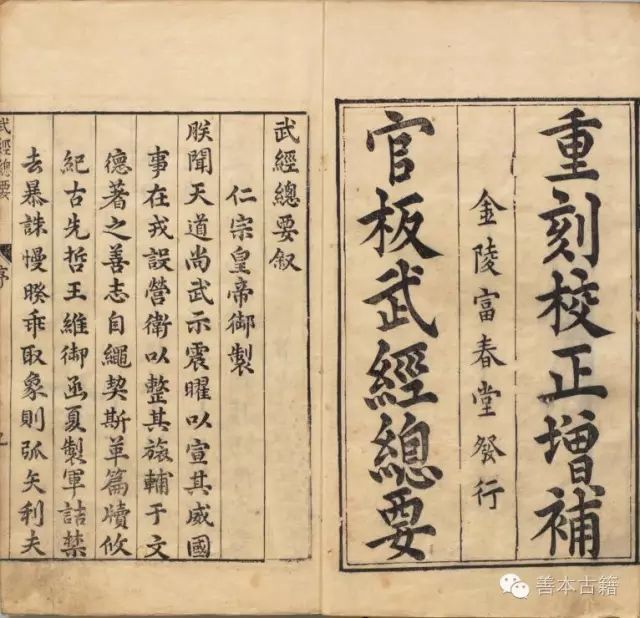 重刻校正增補
金陵富春堂發行
官板武經總要
武經總要叙
仁宗皇帝御製
朕聞天道尚武示震曜以宣其威國
事在戎設營衛以整其旅輔于文
德著之善志自繩契斯革篇牘攸
紀古先哲王維御函夏製軍詰禁
去暴誅慢睽乖取象則弧矢利夫
武經總要
序
善本古籍